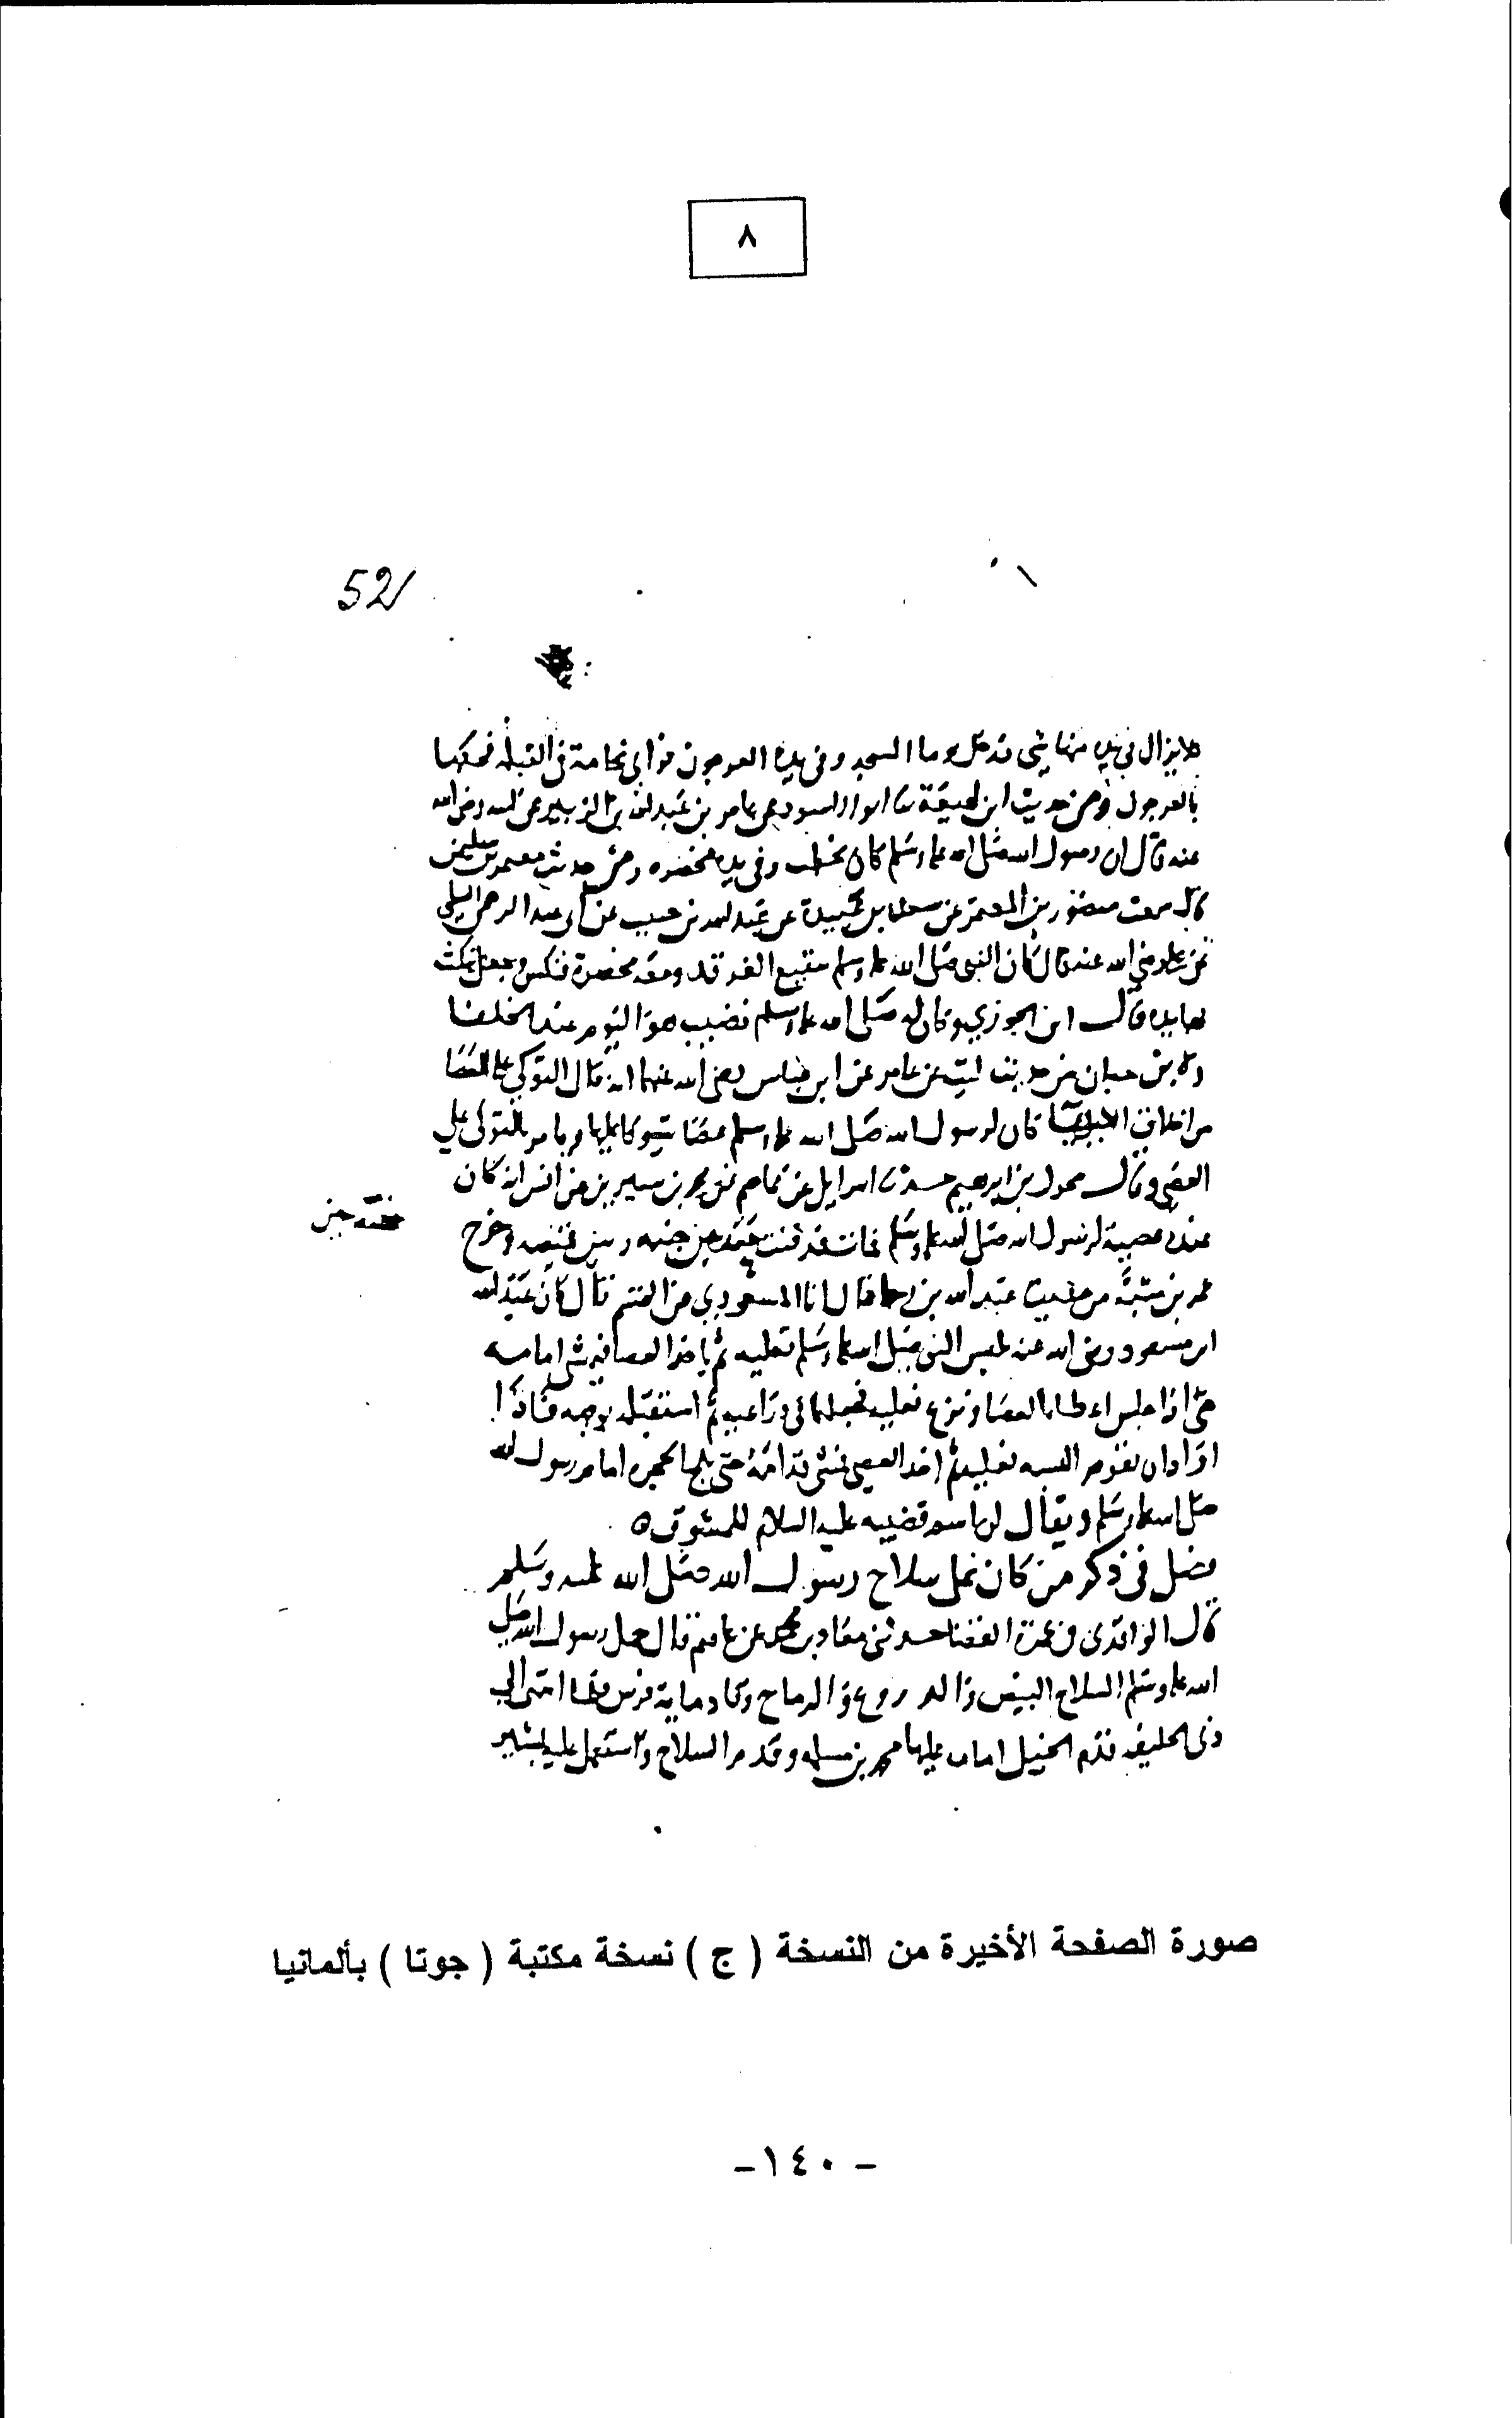 ٨
52
لا يزال في يده منها شي فدخل يوما المسجد وفي يده العرجون فراي نخامة في القبلة فحكها
بالعرجون ومن حديث ابن لهيعة ابو الاسود عن عامر بن عبد الله بن الزبير عن ابيه رضي الله
عنه قال ان رسول الله صلى الله عليه وسلم كان يخطب وفي يده مخصره ومن حديث معتمر بن سليمن
قال سمعت منصور بن المعتمر عن سعد بن عبيدة عن عبد الله بن حبيب عن ابي عبد الرحمن السلمي
عن علي رضي الله عنه قال كان النبي صلى الله عليه وسلم ببقيع الغرقد ومعه مخصرة فنكس وجعل ينكث
بها بيده قال ابن الجوزي وكان له صلى الله عليه وسلم قضيب هو اليوم عند الخلفا
ولابن حبان من حديث ليث عن عامر عن ابن عباس رضي الله عنهما انه قال التوكي على العصا
من اخلاق الانبيا كان لرسول الله صلى الله عليه وسلم عصا يتوكا عليها ويامر بالتوكى علي
العصى وقال محول بن ابرهيم حدثنا اسرايل عن عاصم عن محمد بن سيرين عن انس انه كان
عنده عصية لرسول الله صلى الله عليه وسلم فمات فدفنت معه بين جنبه وبين قميصه وخرج
عمر بن شبة من حديث عبد الله بن رجا قال انا المسعودي عن القسم قال كان عبد الله
ابن مسعود رضي الله عنه يلبس النبي صلى الله عليه وسلم نعليه ثم ياخذ العصا فيمشي امامه
حتى اذا جلس اعطاه العصا ونزع نعليه فجعلهما في ذراعيه ثم استقبله بوجهه فاذا
اراد ان يقوم البسه نعليه ثم اخذ العصى فمشى قدامه حتى يلج الحجره امام رسول الله
صلى الله عليه وسلم ويقال له اسم قضيبه عليه السلام الممشوق ه
فصل في ذكر من كان على سلاح رسول الله صلى الله عليه وسلم
قال الواقدي في عمرة القضا حدثني معاذ بن محمد عن عاصم قال حمل رسول الله صلى
الله عليه وسلم السلاح البيض والدروع والرماح وقاد ماية فرس فلما انتهى الي
ذي الحليفه قدم الخيل امامه عليها محمد بن مسلمه وقدم السلاح واستعمل عليه بشير
صورة الصفحة الأخيرة من النسخة ( ج ) نسخة مكتبة ( جوتا ) بألمانيا
- ١٤٠ -